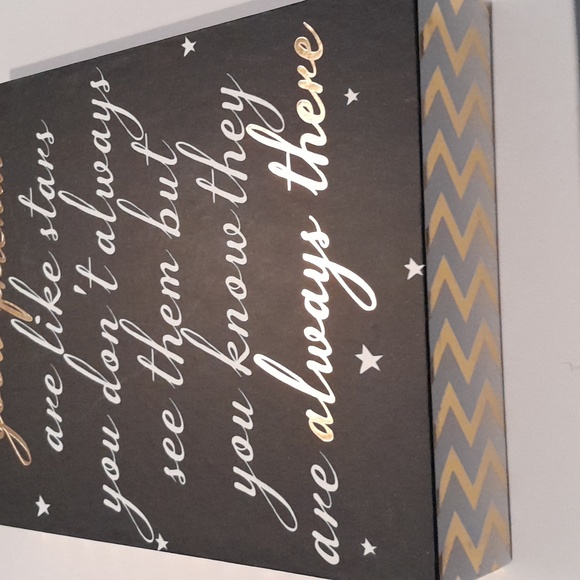 good friends
are like stars
you don't always
see them but
you know they
are always there